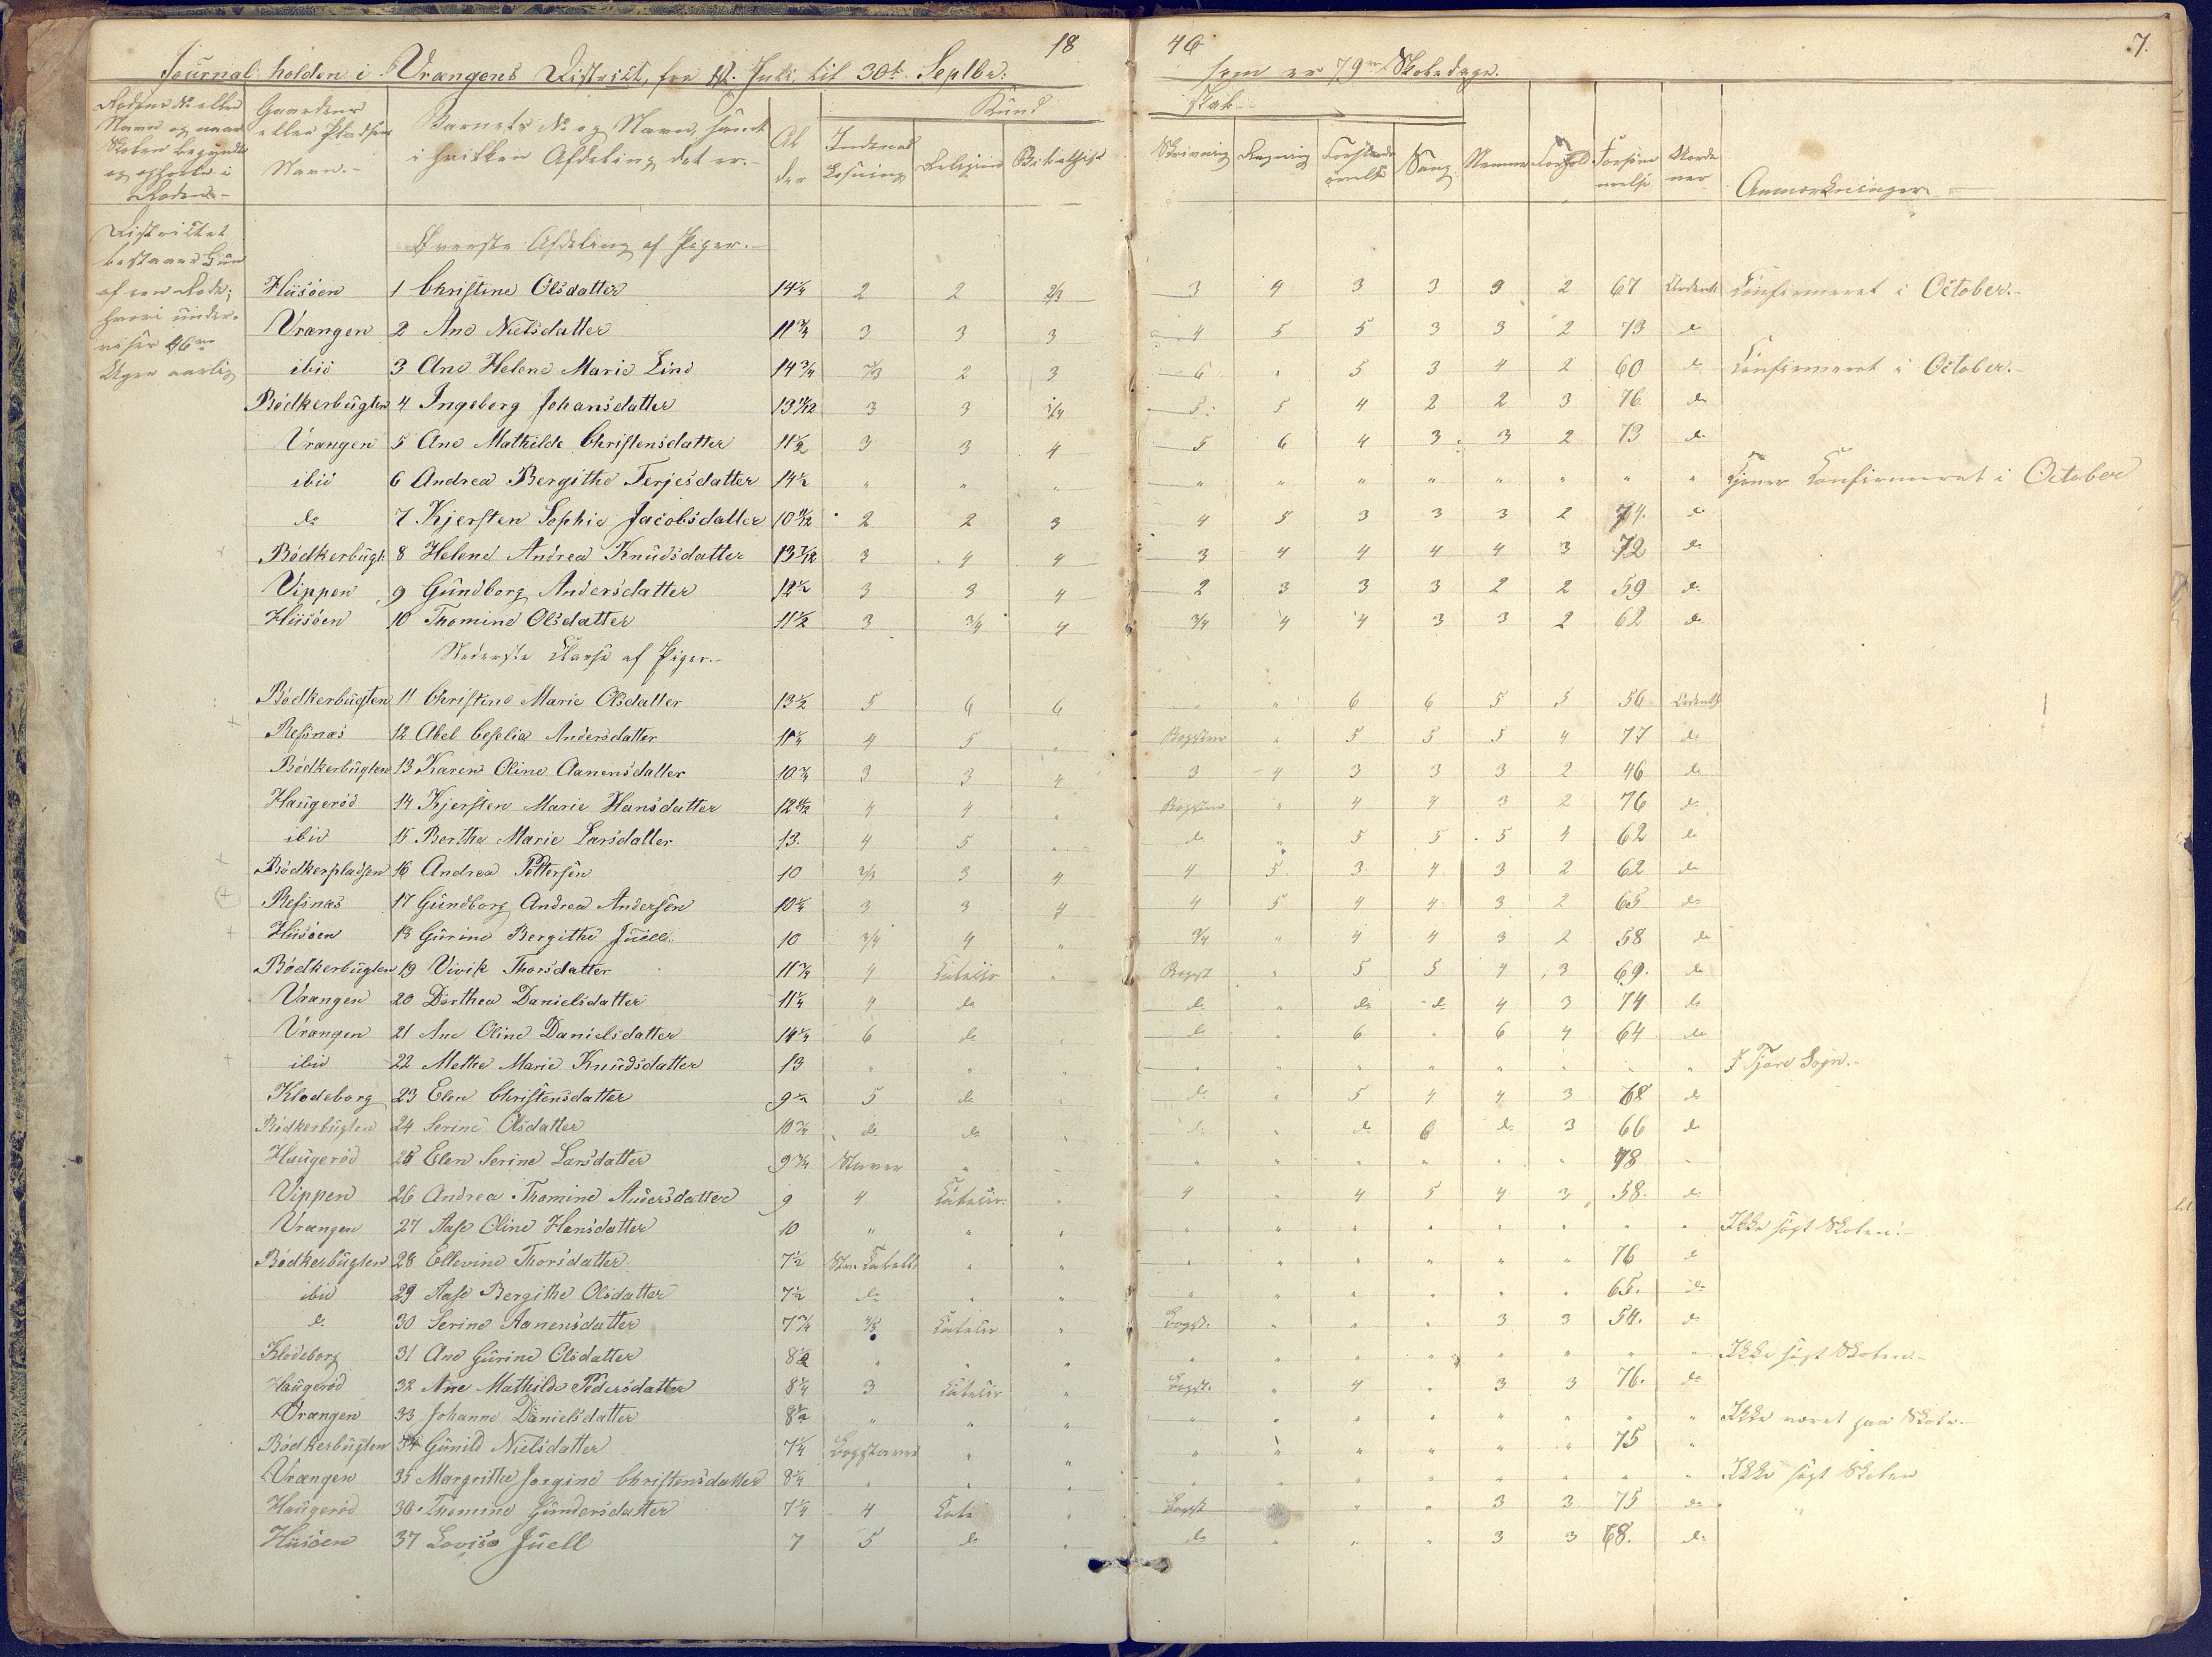 18 46 7.
Journal holden i Vrangens District, fra 1t. Juli til 30t. Septbr: som er 79 Skoledage.
Rodens No eller Navn og naar Skolen begyndte og ophørte i Roden.-
Gaardens eller Pladsens Navn.-
Barnets No og Navn, samt i hvilken Afdeling det er.-
Alder
Kundskab
Indenads Læsning
Religion
Bibelhist
Skrivning
Regning
Forstands øvelse
Sang
Nemme
Forhold
Forsømmelse
Anmærkninger
Districtet bestaaer kun af een Rode; hvori under-
Uger aarlig
Øverste Afdeling af Piger.-
Hiisöen 1 Christine Olsdatter 14¼ 2 2 2/3 3 4 3 3 3 2 67 Confirmeret i October.-
Vrangen 2 Ane Nielsdatter 11¾ 3 3 3 4 5 5 3 3 2 73 do
ibid 3 Ane Helene Marie Lind 14¾ 2/3 2 3 6 " 5 3 4 2 60 do Confirmeret i October.-
Bödkerbugten 4 Ingeborg Johansdatter 3 3 3/4 5 5 4 2 2 3 76 do
Vrangen 5 Ane Mathilde Christensdatter 11½ 3 3 4 5 6 4 3 3 2 73 do
ibid 6 Andrea Bergithe Terjesdatter 14½ " " " " " " " " " " " Confirmeret i October
do 7 Kjersten Sophie Jacobsdatter 2 2 3 4 5 3 3 3 2 74. do
Bödkerbugt. 8 Helene Andrea Knudsdatter 3 4 4 3 4 4 4 4 3 72 do
Vippen 9 Gundborg Andersdatter 12½ 3 3 4 2 3 3 3 2 2 59 do
Hiisöen 10 Thomine Olsdatter 11½ 3 3/4 4 3/4 4 4 3 3 2 62 do
Nederste Classe af Piger.-
Bödkerbugten 11 Christine Marie Olsdatter 13½ 5 6 6 " " 6 6 5 5 56
Refsnæs 12 Abel Ceselia Andersdatter 11¼ 4 5 " Bogstaver " 5 5 5 4 77 do
Bödkerbugten 13 Karen Oline Aanensdatter 10¾ 3 3 4 3 4 3 3 3 2 46 do
Haugeröd 14 Kjersten Marie Hansdatter 4 4 " Bogstaver " 4 4 3 2 76 do
ibid 15 Berthe Marie Larsdatter 13. 4 5 " do " 5 5 5 4 62 do
Bödkerpladsen 16 Andrea Pettersen 10 2/3 3 4 4 5 3 4 3 2 62 do
Refsnæs 17 Gundborg Andrea Andersen 10¼ 3 3 4 4 5 4 4 3 2 65 do
Hiisöen 18 Gurine Bergithe Juell. 10 3/4 4 " 3/4 " 4 4 3 2 58 do
Bödkerbugten 19 Vivik Thorsdatter 11¾ 4 Catecis " Bogst " 5 5 4 3 69. do
Vrangen 20 Dorthea Danielsdatter 11¼ 4 do do " do do 4 3 74 do
Vrangen 21 Ane Oline Danielsdatter 14¼ 6 do " do " 6 " 6 4 64 do
ibid 22 Methe Marie Knudsdatter 13 " " " " " " " " " " " I Tjøre Sogn.-
Klodeborg 23 Elen Christensdatter 9½ 5 do " do " 5 4 4 3 68 do
Bödkerbugten 24 Serine Olsdatter 10¾ do do " do " do 6 do 3 66 do
Haugeröd 25 Elen Serine Larsdatter 9¾ Staver " " " " " " " " 78
Vippen 26 Andrea Thomine Andersdatter 9 4 Catecis: " 4 " 4 5 4 3 58. do
Vrangen 27 Aase Oline Hansdatter 10 " " " " " " " " " " " Ikke søgt Skolen.-
Bödkerbugten 28 Ellevine Thorsdatter 7½ " " " " " " " " 76 do
ibid 29 Aase Bergithe Olsdatter 7½ do " " " " " " " " 65. do
do 30 Serine Aanensdatter 7¾ 4/5 Catecis " Bogst. " " " 3 3 54. do
Klodeborg 31 Ane Gurine Olsdatter 8½ " " " " " " " " " " " Ikke søgt Skolen.-
Haugeröd 32 Ane Mathilde Pedersdatter 8¼ 3 Catecis " Bogst. " 4 " 3 3 76. do
Vrangen 33 Johanne Danielsdatter 8½ " " " " " " " " " " " Ikke været paa Skole.-
Bödkerbugten 34 Gunild Nielsdatter 7¼ Bogstaver " " " " " " " " 75 "
Vrangen 35 Margrethe Jorgine Christensdatter 8¼ " " " " " " " " " " " Ikke søgt Skolen
Haugeröd 36 Thomine Gundersdatter 7¼ 4 Cate " Bogst " " " 3 3 75 do
Hiisöen 37 Lovise Juell 7 5 do " do " " " 3 3 68. do